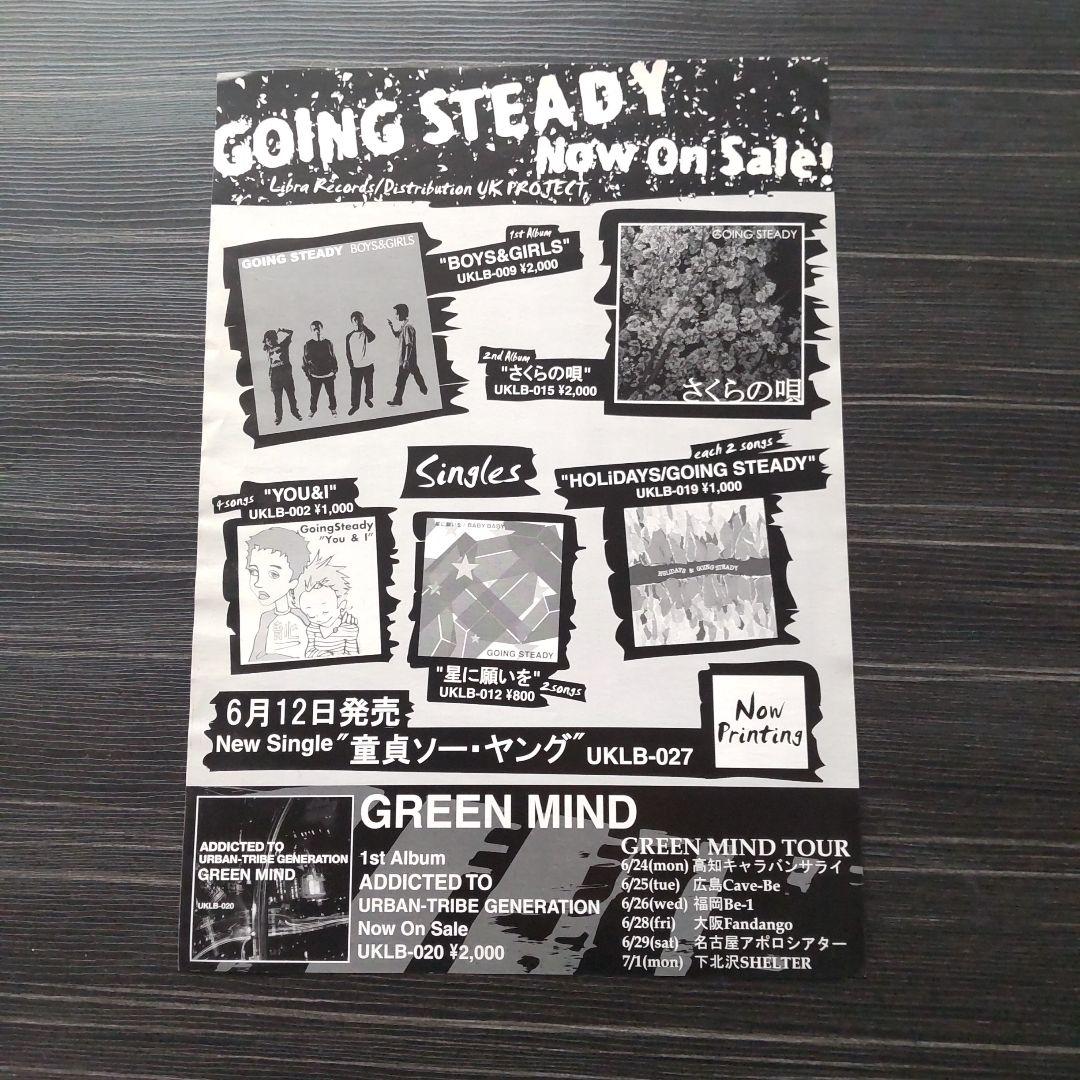 GOING STEADY
Now On Sale!
Libra Records/Distribution UK PROJECT
GOING STEADY BOYS&GIRLS
1st Album
"BOYS&GIRLS"
UKLB-009 ¥2,000
GOING STEADY
さくらの唄
2nd Album
"さくらの唄"
UKLB-015 ¥2,000
Singles
4songs "YOU&I"
UKLB-002 ¥1,000
GoingSteady
"You & I"
BABY BABY
GOING STEADY
"星に願いを"
UKLB-012 ¥800 2songs
each 2 songs
"HOLiDAYS/GOING STEADY"
UKLB-019 ¥1,000
HOLIDAYS & GOING STEADY
6月12日発売
New Single "童貞ソー・ヤング" UKLB-027
Now
Printing
ADDICTED TO
URBAN-TRIBE GENERATION
GREEN MIND
UKLB-020
GREEN MIND
1st Album
ADDICTED TO
URBAN-TRIBE GENERATION
Now On Sale
UKLB-020 ¥2,000
GREEN MIND TOUR
6/24(mon) 高知キャラバンサライ
6/25(tue) 広島Cave-Be
6/26(wed) 福岡Be-1
6/28(fri) 大阪Fandango
6/29(sat) 名古屋アポロシアター
7/1(mon) 下北沢SHELTER